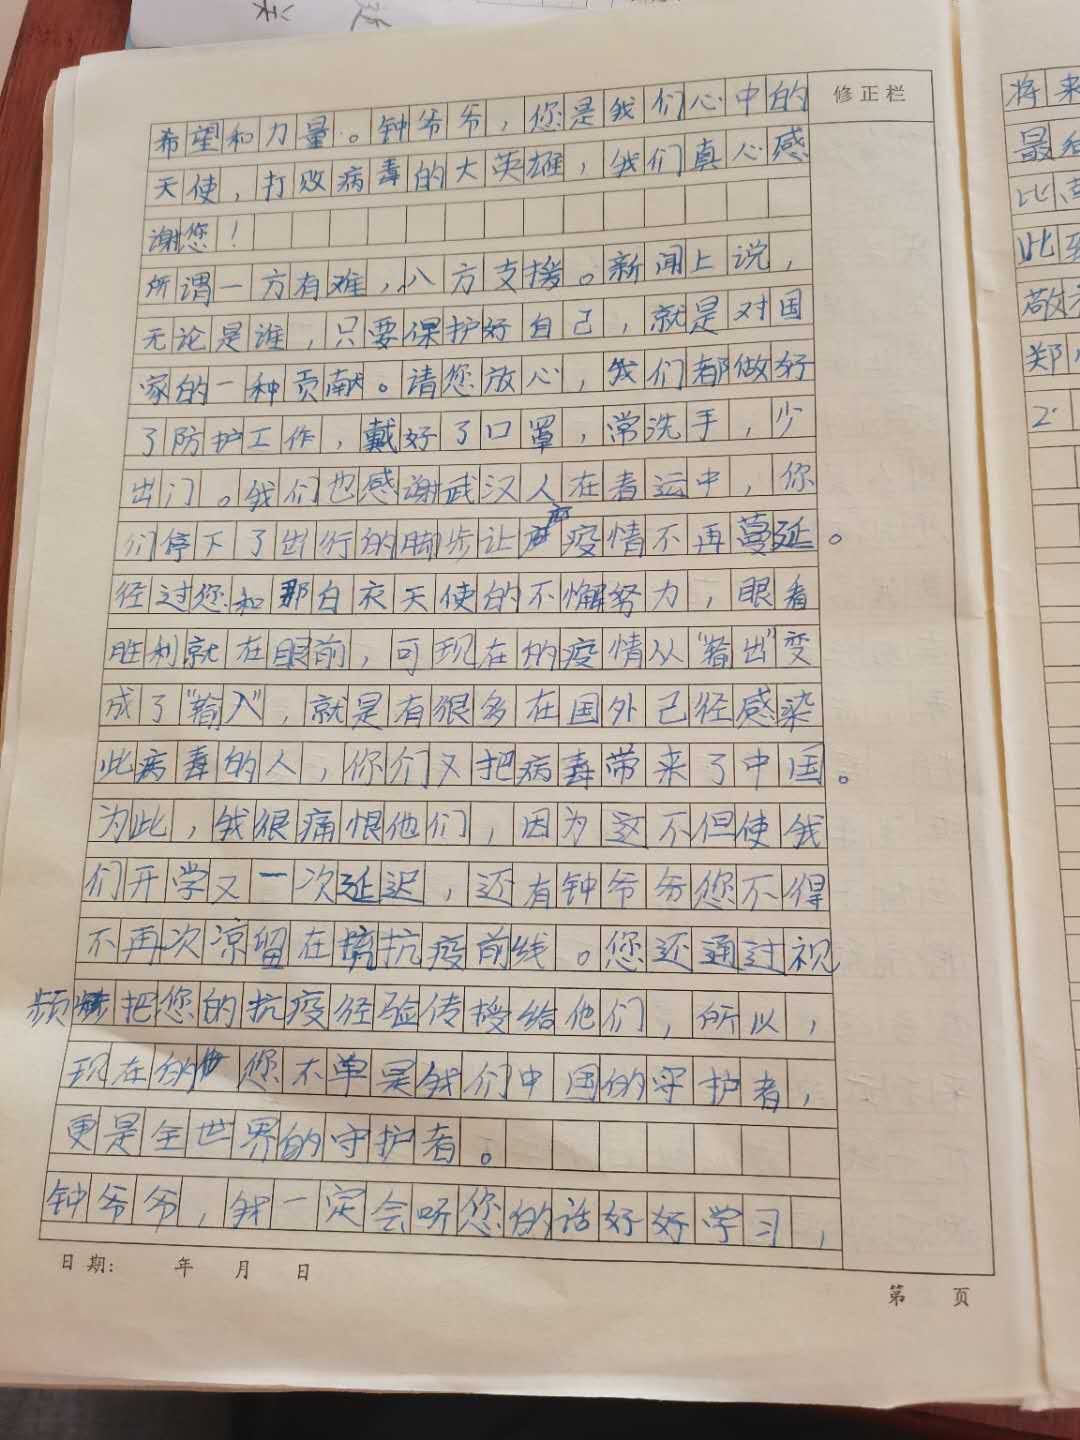 修正栏
希望和力量。钟爷爷，您是我们心中的
天使，打败病毒的大英雄，我们真心感
谢您！
所谓一方有难，八方支援。新闻上说，
无论是谁，只要保护好自己，就是对国
家的一种贡献。请您放心，我们都做好
了防护工作，戴好了口罩，常洗手，少
出门。我们也感谢武汉人在春运中，你
们停下了出行的脚步让疫情不再蔓延。
经过您和那白衣天使的不懈努力，眼看
胜利就在眼前，可现在的疫情从“输出”变
成了“输入”，就是有很多在国外已经感染
此病毒的人，你们又把病毒带来了中国。
为此，我很痛恨他们，因为这不但使我
们开学又一次延迟，还有钟爷爷您不得
不再次凉留在抗疫前线。您还通过视
频把您的抗疫经验传授给他们，所以，
现在的您不单是我们中国的守护者，
更是全世界的守护者。
钟爷爷，我一定会听您的话好好学习，
日期： 年 月 日
第 页
将来
最后
此致
敬
郑
2